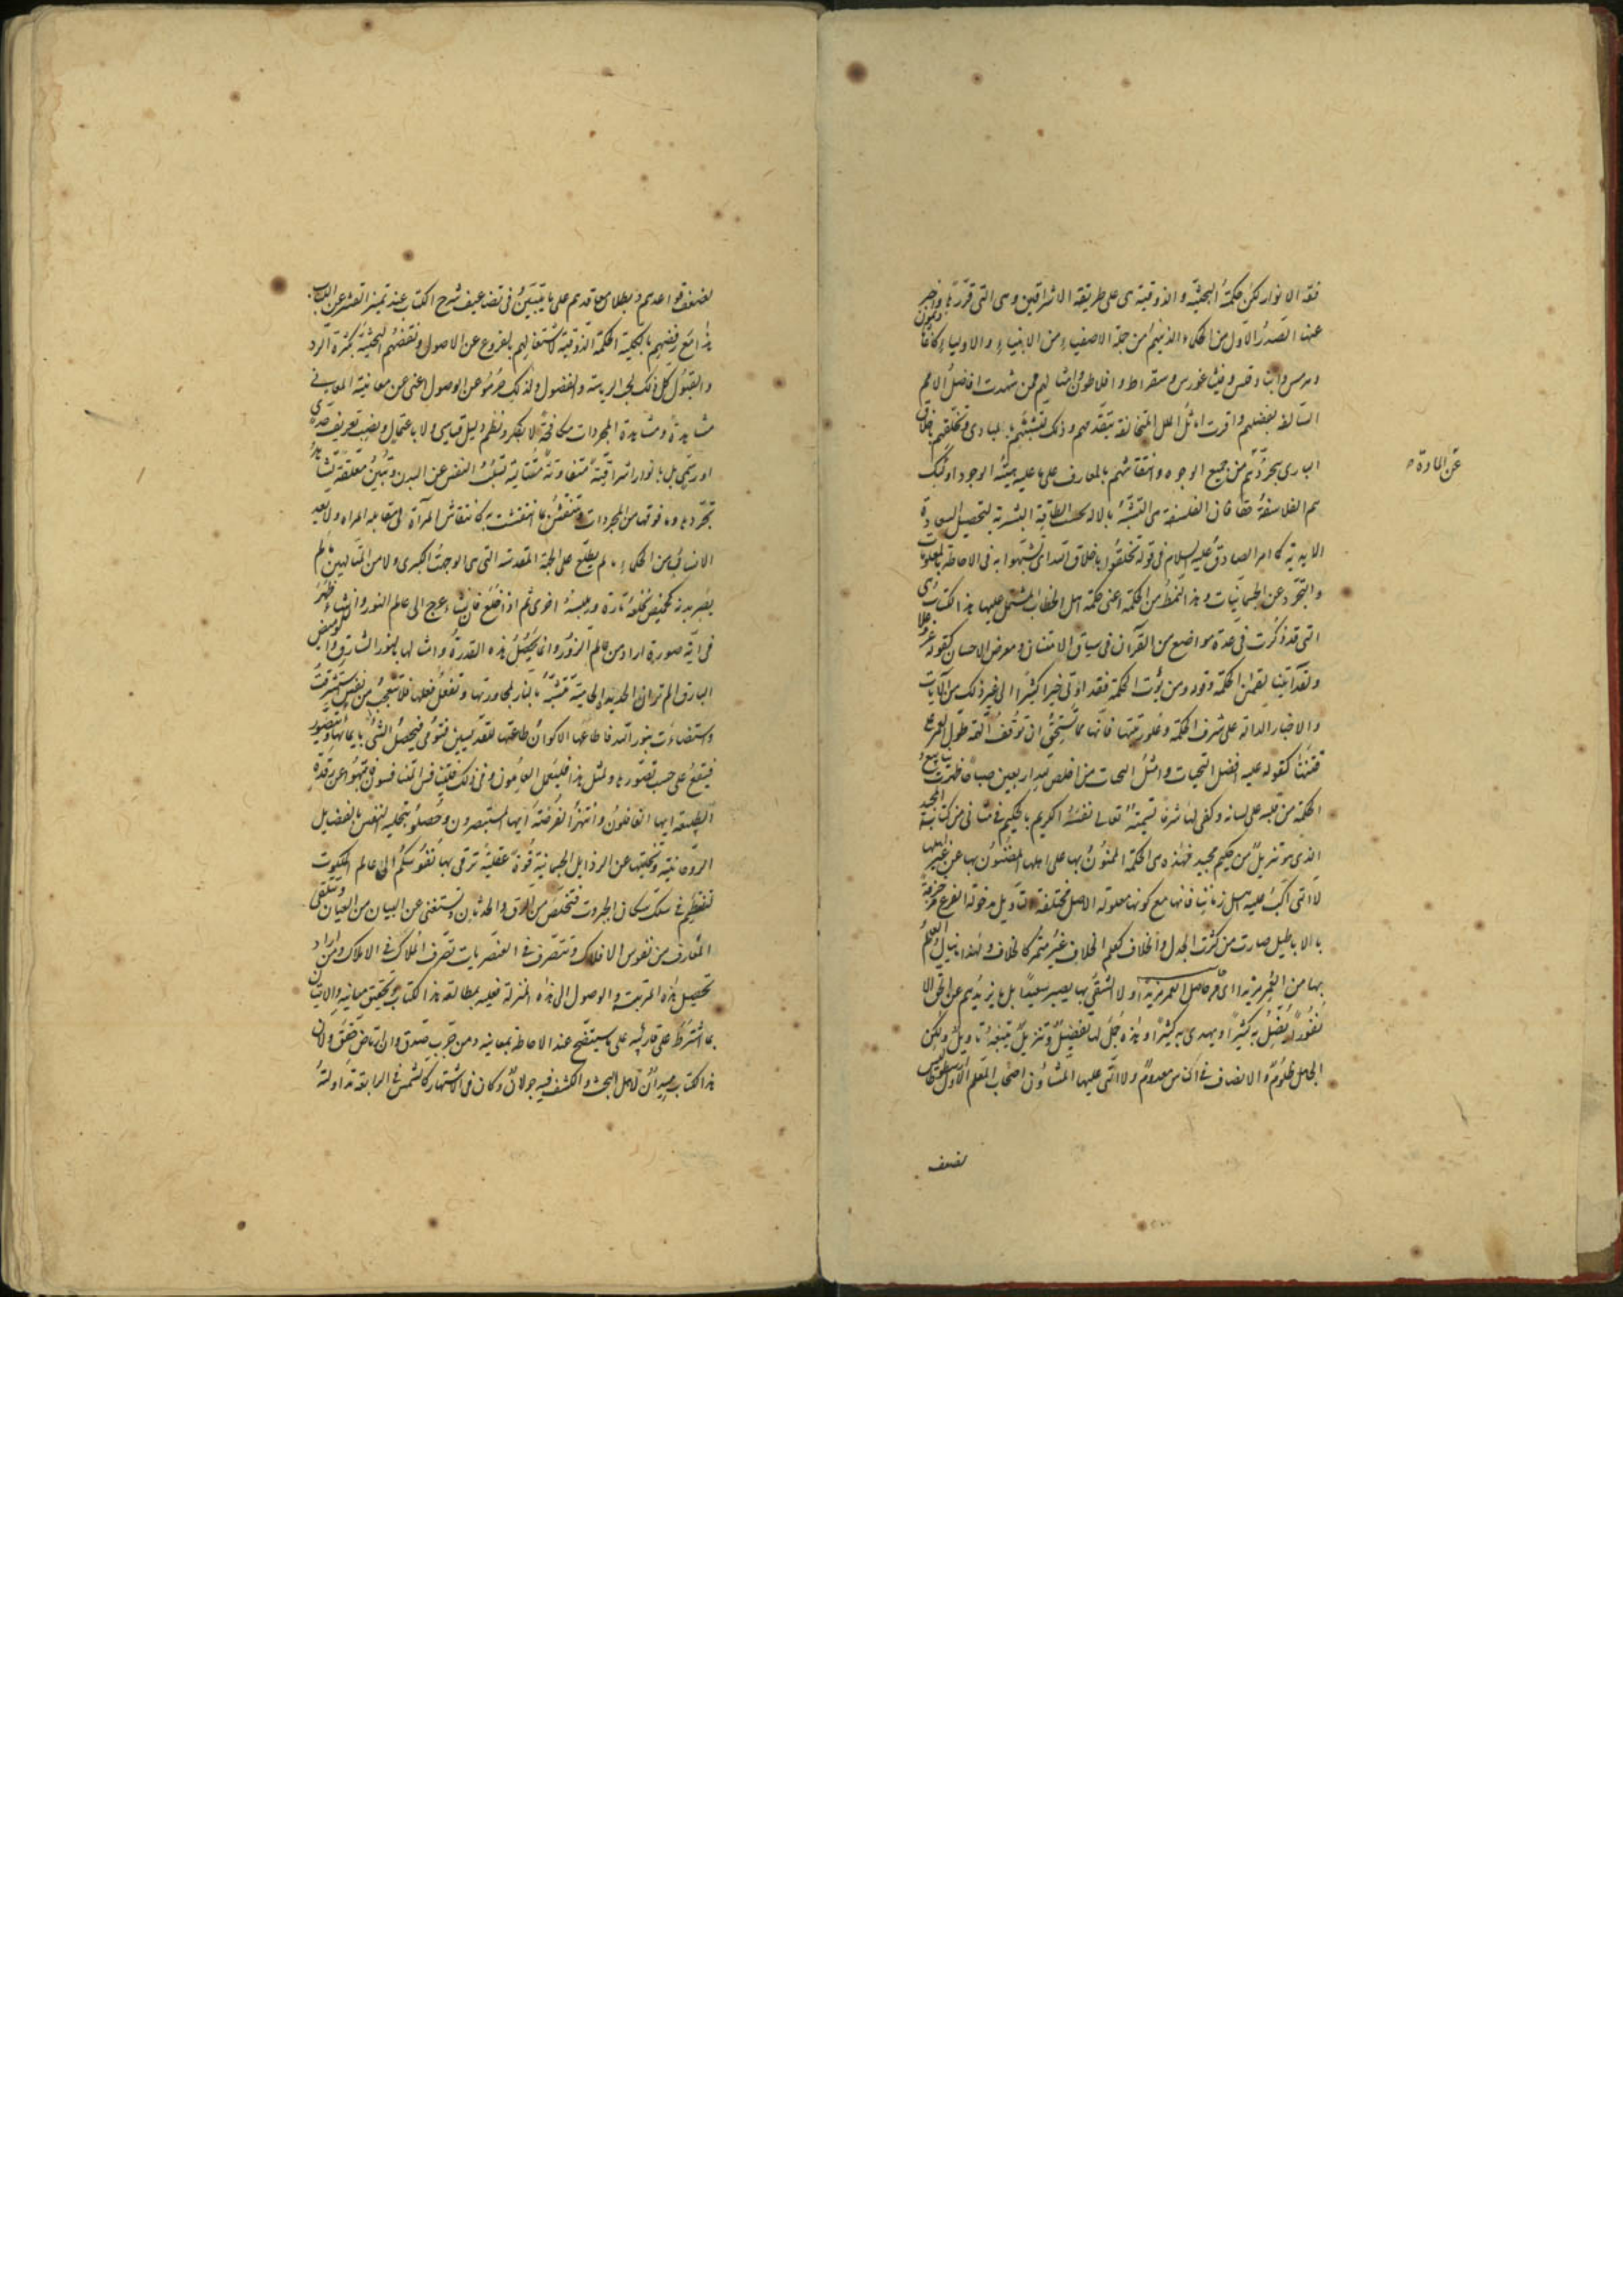 فقه الانوار لكن حكمته البحثية والذوقية هى على طريقة الاشراقين وهى التى قررها واخبر
عنها الصدر الاول من الحكماء الذينهم من جملة الاصفياء من الانبياء والاولياء كاغاثاذيمون
وهرمس وانباذقلس وفيثاغورس وسقراط وافلاطون وامثالهم ممن شهدت افاضل الامم
السالفة بفضلهم واقرت اماثل الملل المتخالفة بتقدمهم وذلك لتشبههم بالمبادى وتخلقهم باخلاق
البارى بتجردهم من جميع الوجوه وانتقاشهم بالمعارف على ما عليه هيئة الوجود اولئك
عن المادة
هم الفلاسفة حقا فان الفلسفة هى التشبه بالاله بحسب الطاقة البشرية لتحصيل السعادة
الابدية كما امر الصادق عليه السلام فى قوله تخلقوا باخلاق الله اى تشبهوا به فى الاحاطة بالمعلومات
والتجرد عن الجسمانيات وهذا النمط من الحكمة اعنى حكمة اهل الخطاب المشتمل عليها هذا الكتاب هى
التى قد ذكرت فى عدة مواضع من القرآن فى سياق الامتنان ومعرض الاحسان كقوله عز وعلا
ولقد آتينا لقمان الحكمة وقوله ومن يؤت الحكمة فقد اوتى خيرا كثيرا الى غير ذلك من الآيات
والاخبار الدالة على شرف الحكمة وعلو رتبتها فانها مما تستحق ان توقف الهمة طول العمر على
قنيتها كقوله عليه افضل التحيات وامثل من اخلص لله اربعين صباحا ظهرت ينابيع
الحكمة من قلبه على لسانه وكفى لها شرفا تسميته تعالى نفسه الكريم بالحكيم فى مثانى من كتابه المجيد
الذى هو تنزيل من حكيم مجيد فهذه هى الحكمة الممنون بها على اهلها المضنون بها عن غير اهلها
لا التى اكب عليه اهل زماننا فانها مع كونها معلولة الاصل مختلفة مدخولة الفرع مزخرفة
بالاباطيل صارت من كثرت الجدل والخلاف كعلم الخلاف غير مثمر كالخلاف ولهذا ما ينال العلم
بها من مزيد اى ولا الشقى بها يصير سعيدا بل ما يزيدهم عن الحق الا
نفورا يضل به كثيرا ويهدى به كثيرا وهذه جل لها تفضيل وتنزيل يتبعه تاويل ولكن
الجاهل ظلوم والانصاف فى الناس معدوم ولا التى عليها المشاؤن اصحاب المعلم الاول
لضعف
لضعف قواعدهم وبطلان معاقدهم على ما يتبين فى تضاعيف شرح الكتاب عند تميز القشر عن اللباب
هذا مع رفضهم بالكلية الحكمة الذوقية لاشتغالهم بالفروع عن الاصول ونقضهم البحثية بكثرة الرد
والقبول كل ذلك لحب الرياسة والفضول ولذلك حرموا عن الوصول اعنى عن معاينة المعانى
مشاهدة ومشاهدة المجردات مكافحة لا بفكر ونظم دليل قياسى ولا باعتمال ونصب تعريف حدى
او رسمى بل بانوار اشراقية متفاوتة متتالية تسلب النفس عن البدن وتبين معلقة تشاهد
تجردها وما فوقها من المجردات وتنتقش بما انتقشت به كانتقاش المرآة فى مقابلة المرآة ولا يعد
الانسان من الحكماء ما لم يطلع على الجهة المقدسة التى هى الوجهة الكبرى ولا من المتالهين ما لم
يصر بدنه كقميص يخلعه تارة ويلبسه اخرى ثم اذا خلع فان شاء عرج الى عالم النور وان شاء ظهر
فى اية صورة اراد من عالم الزور وانما يحصل هذه القدرة وامثالها بالنور الشارق والوميض
البارق الم تر ان الحديدة الحامية تتشبه بالنار لمجاورتها وتفعل فعلها فلا تعجب من نفس استشرقت
واستضاءت بنور الله فاطاعها الاكوان طاعتها للقديسين فتومى فيحصل الشئ بايمائها وتتصور
فيقع على حسب تصورها ولمثل هذا فليعمل العاملون وفى ذلك فليتنافس المتنافسون فتنبهوا عن رقدة
الطبيعة ايها الغافلون وانتهزوا الفرصة ايها المستبصرون وحصلوا بتحلية النفس بالفضايل
الروحانية وتخليتها عن الرذايل الجسمانية قوة عقلية ترقى بها نفوسكم الى عالم الملكوت
لتنتظم فى سلك سكان الجبروت فتتخلص من الرق والحدثان وتستغنى عن البيان من العيان وتتلقى
المعارف من نفوس الافلاك وتتصرف فى العنصريات تصرف الملاك فى الاملاك ومن اراد
تحصيل هذه المرتبة والوصول الى هذه المنزلة فعليه بمطالعة هذا الكتاب وتحقيق معانيه والاتيان
بما اشترط على قارئيه على ما سيتضح عند الاحاطة بمعانيه ومن جرب صدق وان ارتاض حقق ولان
هذا الكتاب ميدان لاهل البحث والكشف فيه جولان وكان فى الاشتهار كالشمس فى الرابعة تداولته